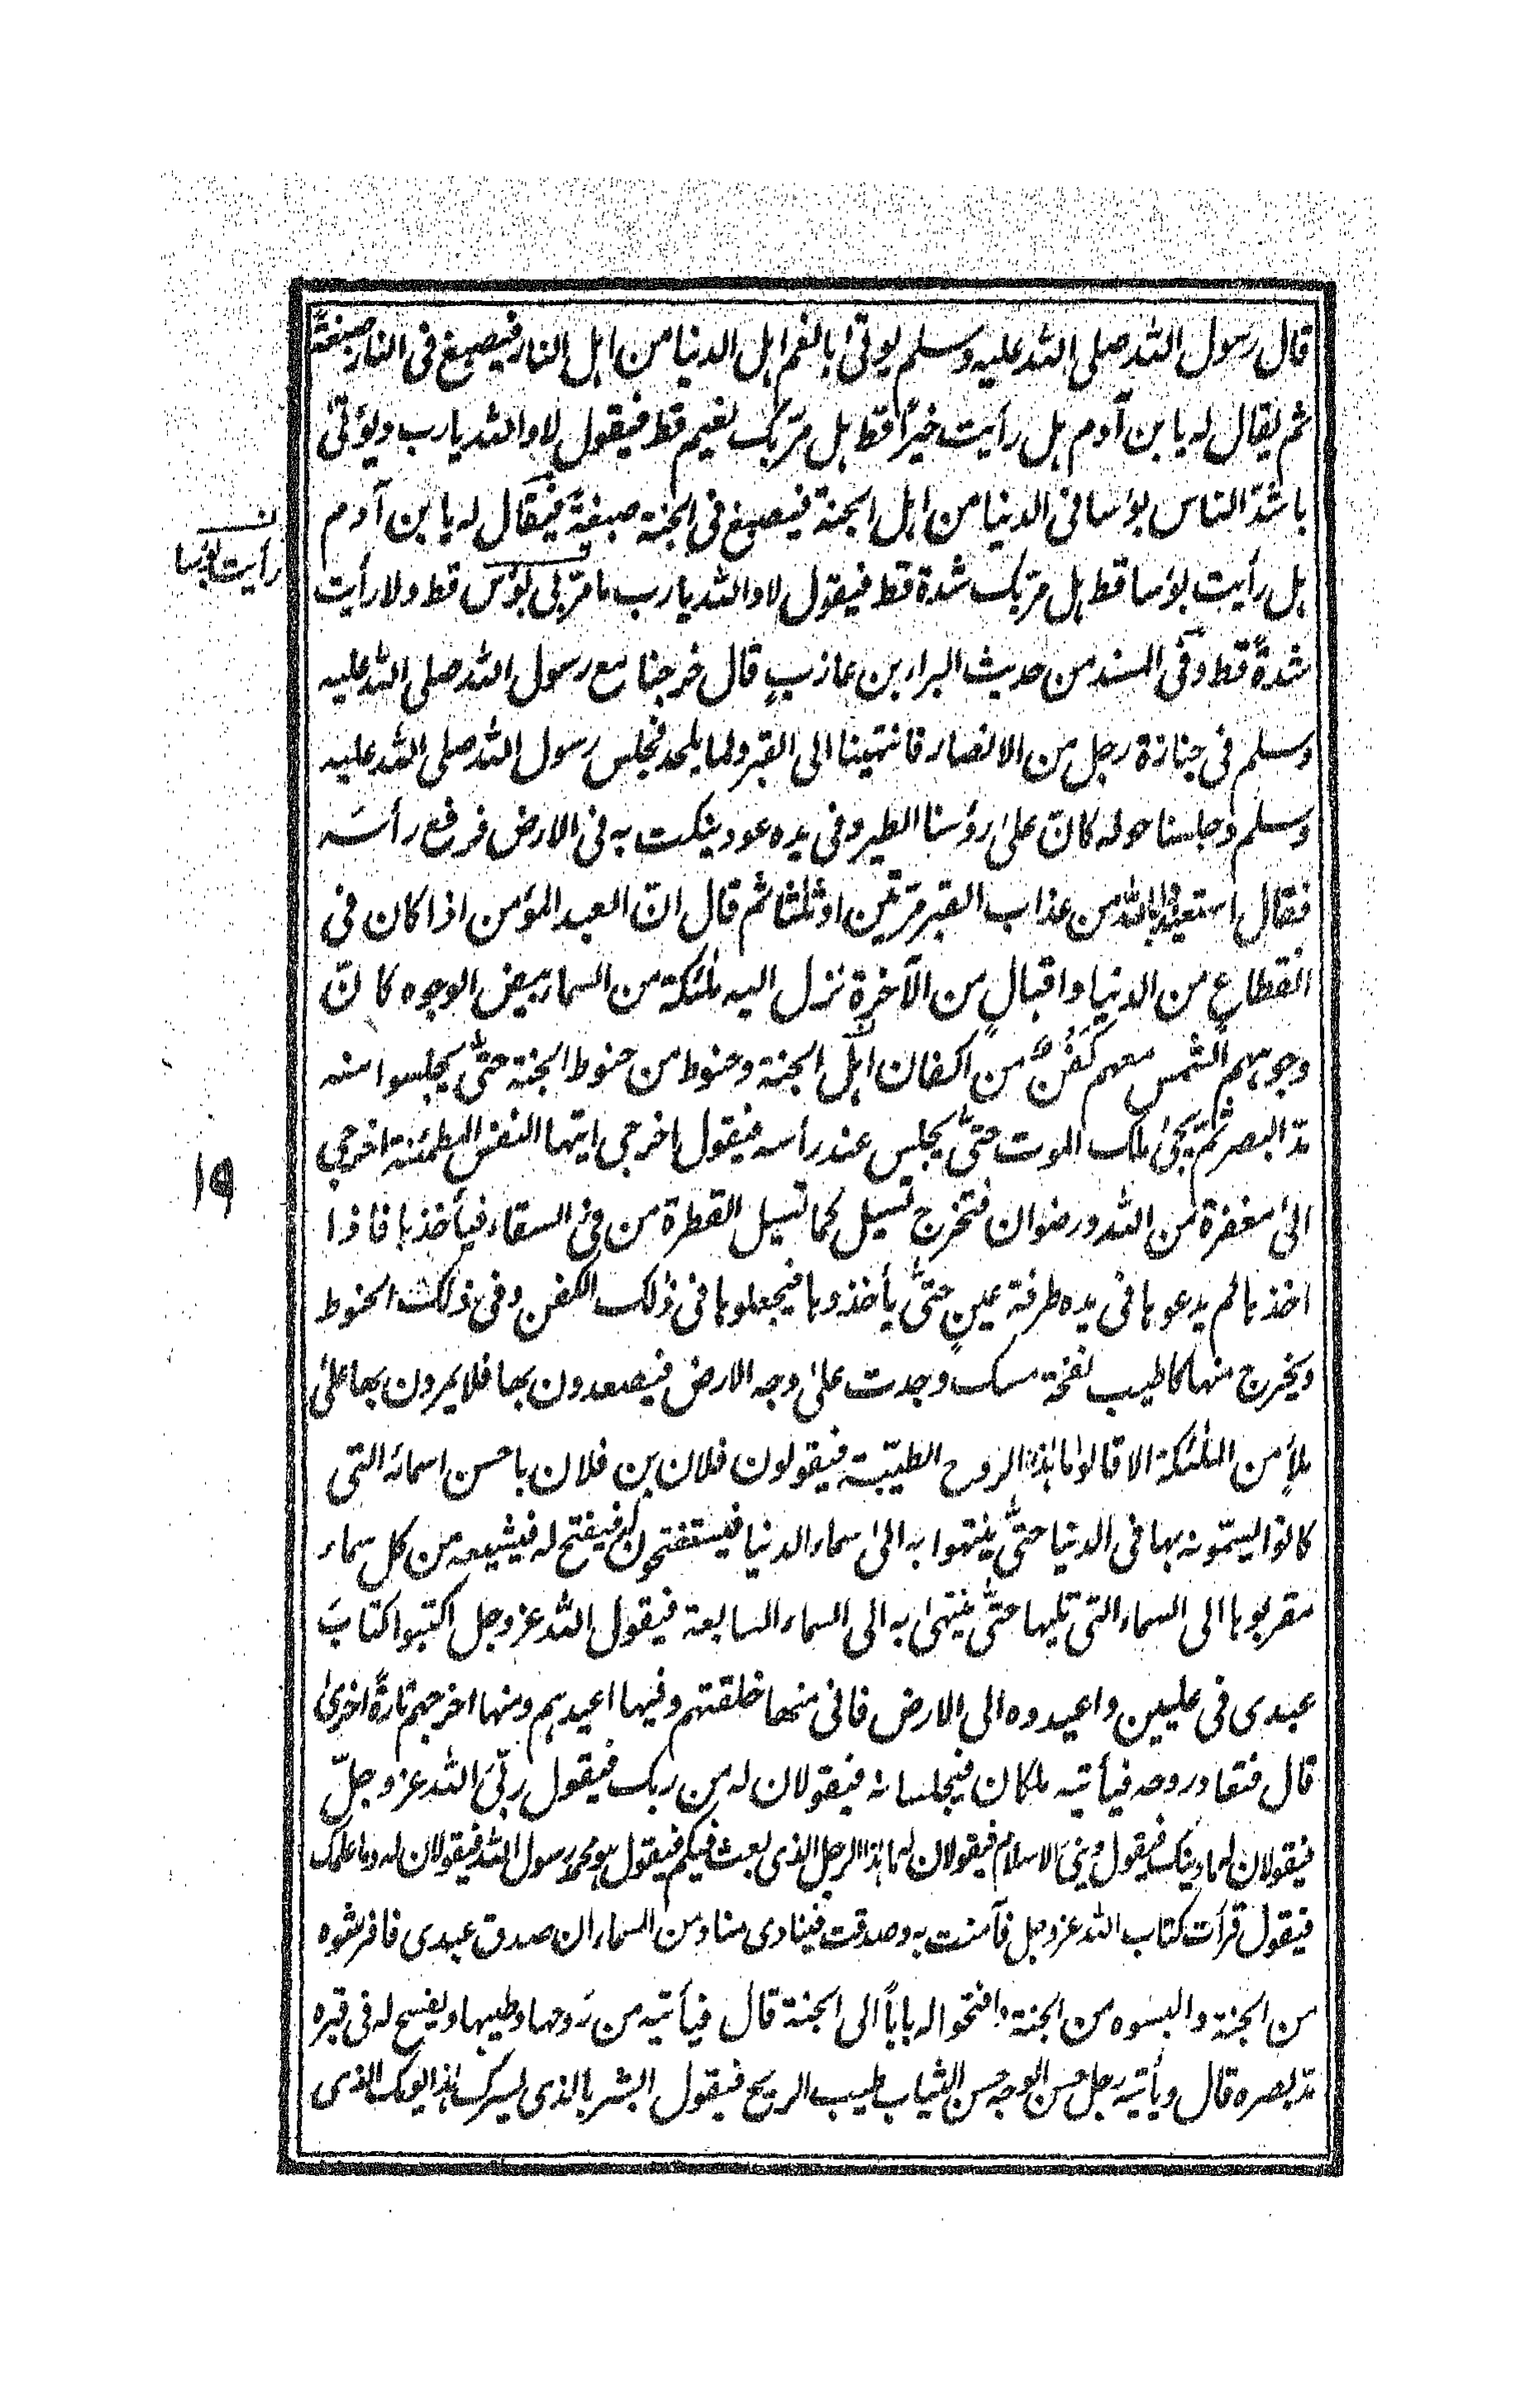 قال رسول الله صلى الله عليه وسلم يوتى بانعم اهل الدنيا من اهل النار فيصبغ فى النار صبغةً
ثم يقال له يا بن آدم هل رأيت خيراً قط هل مرّ بك نعيم قط فيقول لا والله يا رب ويؤتى
باشدّ الناس بؤسا فى الدنيا من اهل الجنة فيصبغ فى الجنة صبغةً فيقال له يا بن آدم
هل رأيت بؤسا قط هل مرّ بك شدة قط فيقول لا والله يا رب ما مرّ بى بؤس قط ولا رأيت
رأيت بؤسا
شدةً قط وفى المسند من حديث البراء بن عازبٍ قال خرجنا مع رسول الله صلى الله عليه
وسلم فى جنازة رجل من الانصار فانتهينا الى القبر ولما يلحد فجلس رسول الله صلى الله عليه
وسلم وجلسنا حوله كانّ على رؤسنا الطير وفى يده عود ينكت به فى الارض فرفع رأسَه
فقال استعيذوا بالله من عذاب القبر مرّتين او ثلثا ثم قال انّ العبد المؤمن اذا كان فى
انقطاعٍ من الدنيا واقبالٍ من الآخرة نزل اليه ملئكة من السماء بيض الوجوه كانّ
وجوههم الشمس معهم كَفَنٌ من اكفان اهل الجنة وحنوط من حنوط الجنة حتّى يجلسوا منه
مدّ البصر ثمّ يجئ ملك الموت حتّى يجلس عند رأسه فيقول اخرجى ايتها النفس المطمئنة اخرجى
الى مغفرة من الله ورضوان فتخرج تسيل كما تسيل القطرة من فىّ السقاء فيأخذها فاذا
اخذها لم يدعوها فى يده طرفة عينٍ حتّى يأخذوها فيجعلوها فى ذلك الكفن وفى ذلك الحنوط
ويخرج منها كاطيب نفخة مسك وجدت على وجه الارض فيصعدون بها فلا يمرون بها على
ملأٍ من الملئكة الا قالوا ما هذا الروح الطيّبة فيقولون فلان بن فلان باحسن اسمائه التى
كانوا يسمّونه بها فى الدنيا حتّى ينتهوا به الى سماء الدنيا فيستفتحون له فيفتح له فيشيعه من كل سماء
مقربوها الى السماء التى تليها حتّى ينتهى به الى السماء السابعة فيقول الله عز وجل اكتبوا كتابَ
عبدى فى عليين واعيدوه الى الارض فانى منها خلقتهم وفيها اعيدهم ومنها اخرجهم تارةً اخرى
قال فتعاد روحه فيأتيه ملكان فيجلسانه فيقولان له من ربك فيقول ربّىَ الله عز وجلّ
فيقولان له ما دينك فيقول دينىَ الاسلام فيقولان له ما هذا الرجل الذى بعث فيكم فيقول هو محمد رسول الله فيقولان له وما علمك
فيقول قرأت كتاب الله عز وجل فآمنت به وصدقت فينادى مناد من السماء ان صدق عبدى فافرشوه
من الجنة والبسوه من الجنة وافتحوا له باباً الى الجنة قال فيأتيه من رَوحها وطيبها ويفسح له فى قبره
مدّ بصره قال ويأتيه رجل حسن الوجه حسن الثياب طيب الريح فيقول ابشر بالذى يسرك هذا يومك الذى
١٩